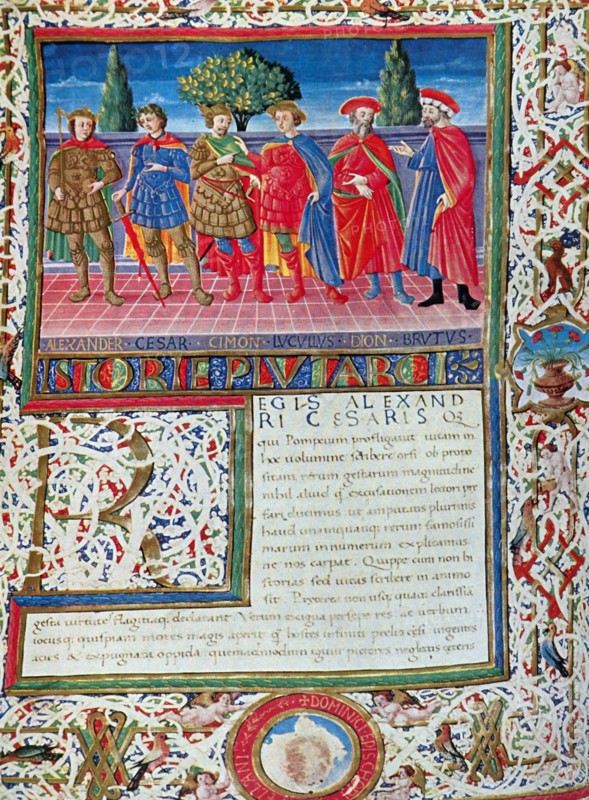 ALEXANDER · CESAR · CIMON · LUCULLUS · DION · BRUTUS ·
ISTORIE PLUTARCI
R
EGIS ALEXAND
RI CESARIS Q
qui Pompeium profligauit uitam in
hoc uolumine scribere orsi ob propo
sitam rerum gestarum magnitudine
nihil aliud q̃ excusationem lectori pre
fari ducimus ut amputatis plurimis
haud unamquanq; rerum famosissi
marum in numerum explicamus
ne nos carpat. Quippe cum non hi
storias sed uitas scribere in animo
sit. Preterea non usq; quaq; clarissia
gesta uirtute flagitiaq; declarant. Verum exigua persepe res ac uerbum
iocusq; quispiam mores magis aperit q̃ hostes infiniti prelio cesi ingentes
acies & expugnata oppida quemadmodum igitur pictores neglectis ceteris
+ DOMINICI EPISC
PHOTO 12
PHOTO
PHOTO